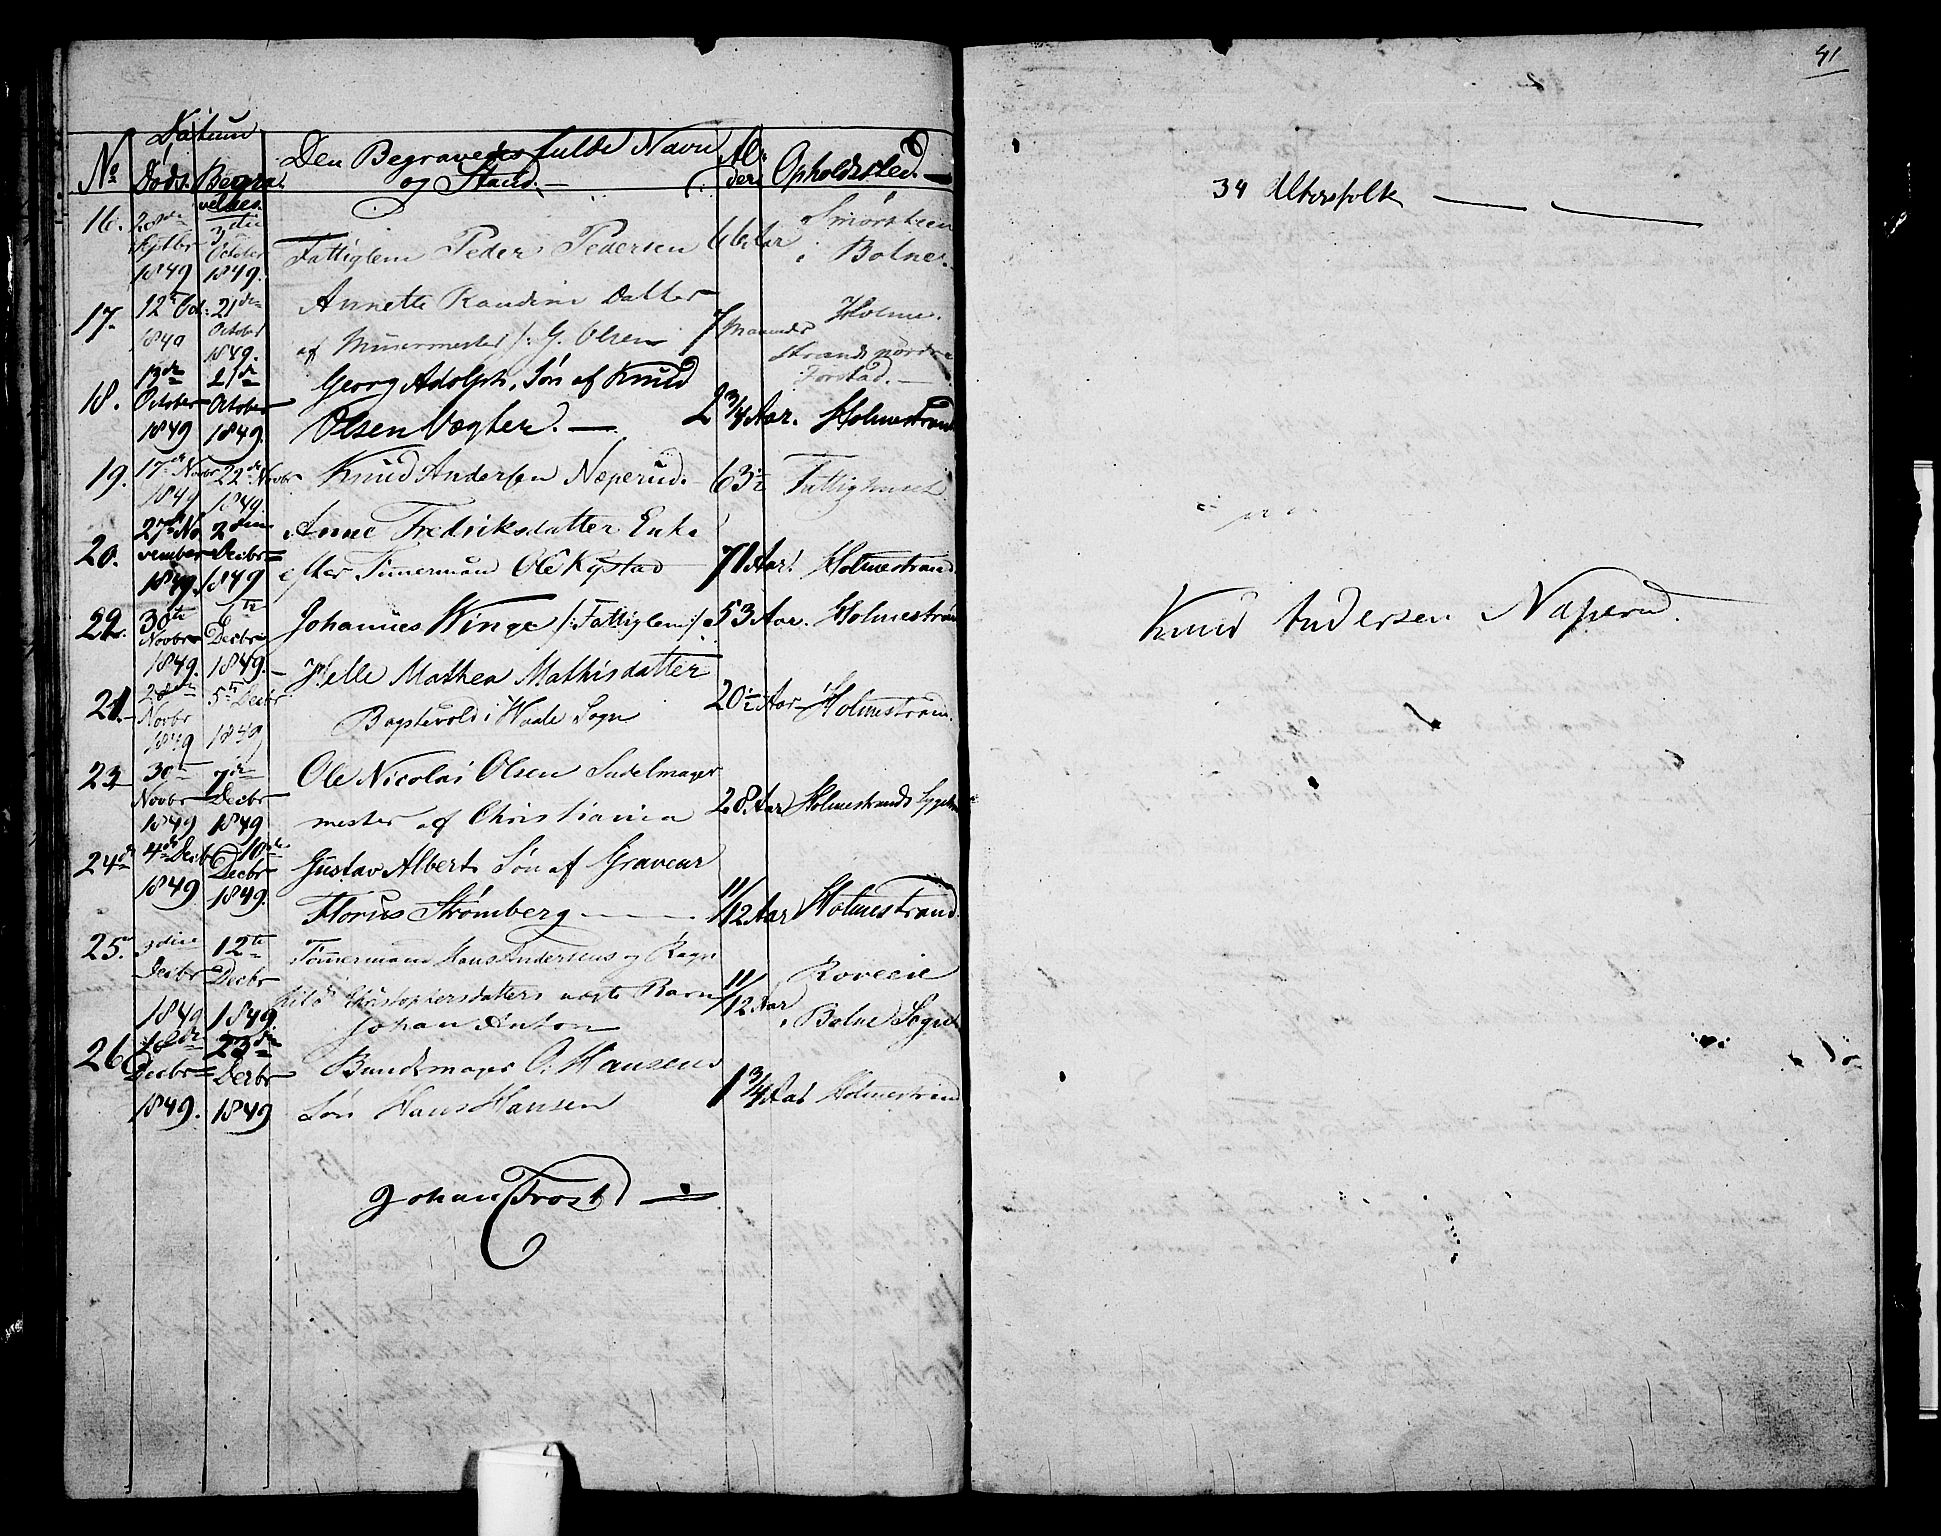 Datum
No Døds. Begra- Den Begravedes fulde Navn Al- Opholdssted.
velses. og Stand. der
16. 28de 3die Smørsteen
Sptbr October Fattiglem Peder Pedersen 66 Aar i Botne.
1849 1849.
17. 12te Oct. 21de Annette Randine Datter Holme-
1849 October af Muurmester G. Olsen 7 Maaneder Strands nordre
1849. Forstad.
18. 13de 21de Georg Adolph, Søn af Knud
October October Olsen Vægter. 2 3/4 Aar. Holmestrand
1849 1849.
19. 17de Novbr 22de Novbr Knud Andersen Næperud. 63 1/2 Fattighuset
1849 1849.
20. 27de No 2den Anne Fredriksdatter Enke
vember Decbr efter Timermand Ole Kystad 71 Aar Holmestrand.
1849. 1849
22. 30te 7de Johannes Winge /: Fattiglem :/ 53 Aar. Holmestrand
Novbr Decbr
1849. 1849.
21. 28de 5te Decbr Helle Mathea Mathisdatter 20 1/2 Aar Holmestrand.
Novbr i Waale Sogn
1849 1849
23 30te 7de Ole Nicolai Olsen Sadelmager
Novbr Decbr mester af Christiania 28 Aar Holmestrands
1849 1849
24de 4de Decbr 10de Gustav Albert Søn af Graveur
1849 Decbr
1849. Florus Strømberg 11/12 Aar Holmestrand.
25. 9die 12te Timermand Hans Andersens og Ragn
Decbr Decbr hild Christophersdatters ægte Barn 11/12 Aar Roveeie
1849 1849 Johan Anton i Botne Sogn
26 18de 23de Bundtmager O. Hansens
Decbr Decbr 1 3/4 Aar Holmestrand
1849. 1849 Søn Hans Hansen
Johan Frost
41
34 Altersfolk
Knud Andersen Næperud.